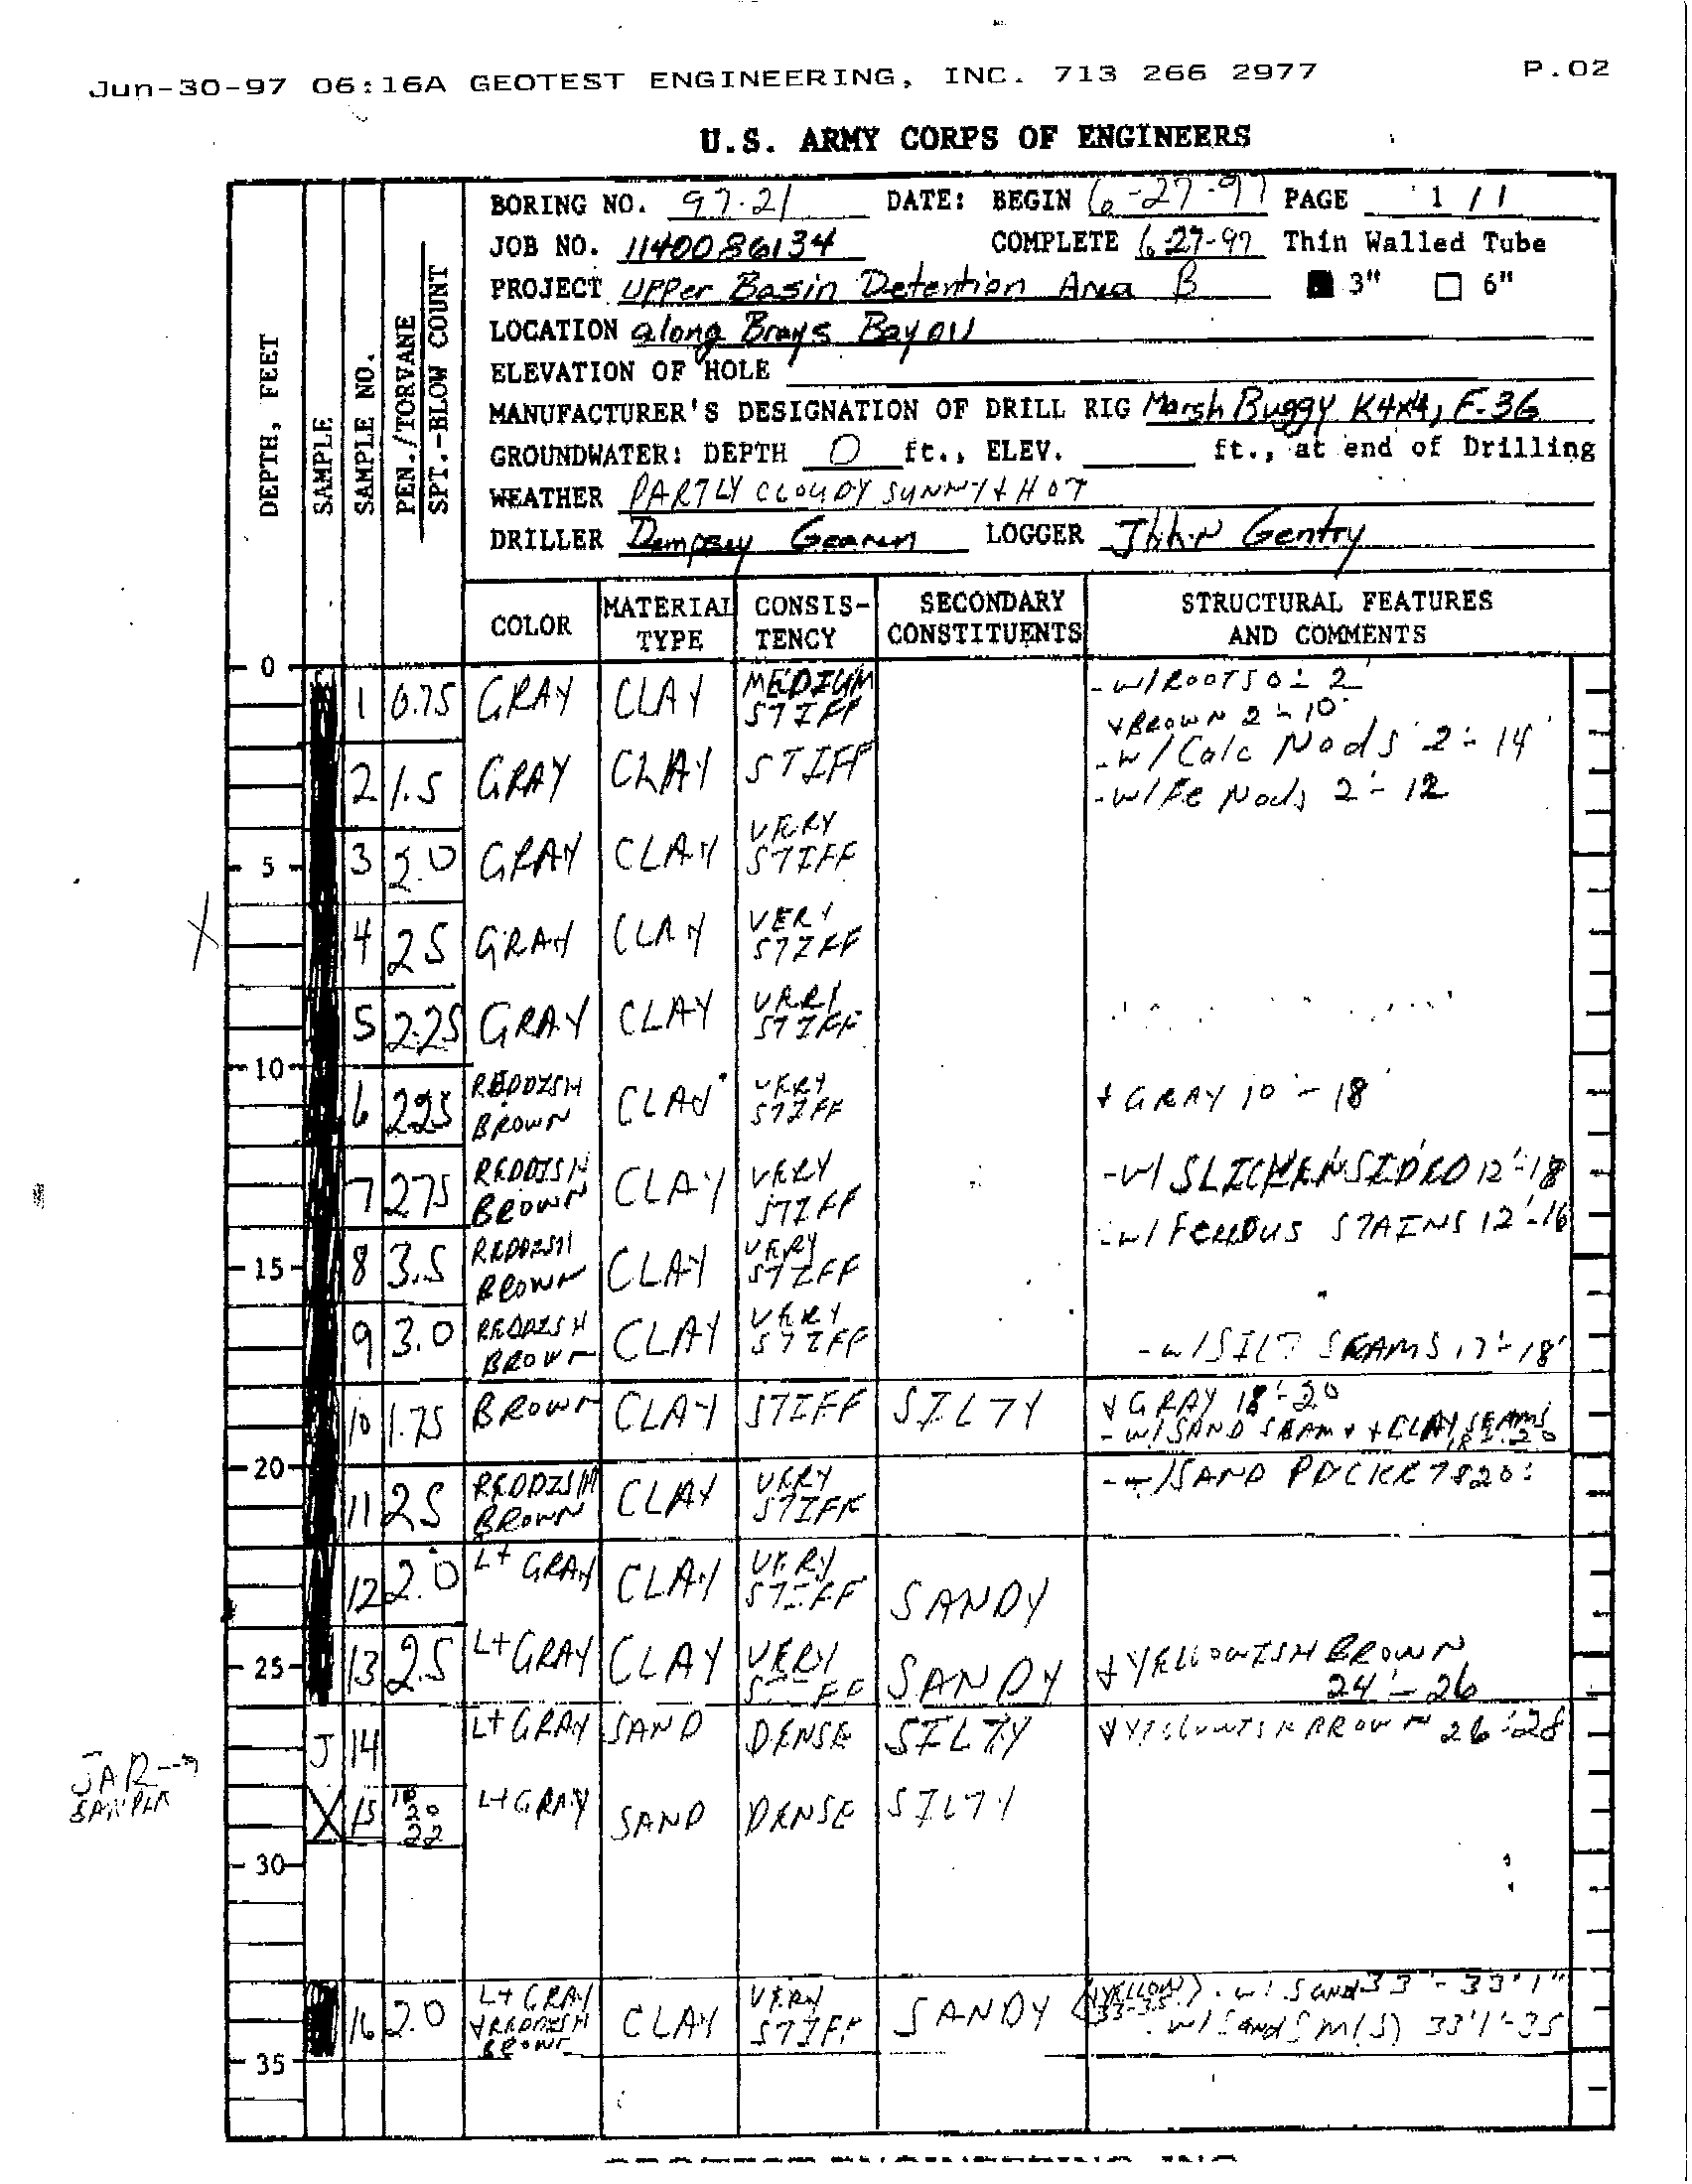 Jun-30-97 06:16A GEOTEST ENGINEERING, INC. 713 266 2977 P.02
U.S. ARMY CORPS OF ENGINEERS
BORING NO. 97-21 DATE: BEGIN 6-27-97 PAGE 1 / 1
JOB NO. 1140086134 COMPLETE 6-27-97 Thin Walled Tube
PROJECT UPPer Basin Detention Area B 3" 6"
LOCATION along Brays Bayou
ELEVATION OF HOLE
MANUFACTURER'S DESIGNATION OF DRILL RIG Marsh Buggy K4x4, F-36
GROUNDWATER: DEPTH 0 ft., ELEV. ft., at end of Drilling
WEATHER PARTLY CLOUDY SUNNY + HOT
DRILLER Dempsey LOGGER John Gentry
DEPTH, FEET
SAMPLE
SAMPLE NO.
PEN./TORVANE
SPT.-BLOW COUNT
COLOR MATERIAL TYPE CONSIS-TENCY SECONDARY CONSTITUENTS STRUCTURAL FEATURES AND COMMENTS
0
1 0.75 GRAY CLAY MEDIUM STIFF - W/ROOTS 0'- 2'
+ BROWN 2'- 10'
2 1.5 GRAY CLAY STIFF - W/ Calc Nods 2'- 14'
- W/ Fe Nods 2'- 12
5
3 2.0 GRAY CLAY VERY STIFF
4 2.5 GRAY CLAY VERY STIFF
5 2.25 GRAY CLAY VERY STIFF
10
6 2.25 REDDISH BROWN CLAY VERY STIFF + GRAY 10'- 18'
7 2.75 REDDISH BROWN CLAY VERY STIFF - W/ SLICKENSIDED 12'-18
- W/ FERROUS STAINS 12'-16
15
8 3.5 REDDISH BROWN CLAY VERY STIFF
9 3.0 REDDISH BROWN CLAY VERY STIFF - W/SILT SEAMS 17'-18'
10 1.75 BROWN CLAY STIFF SILTY + GRAY 18'-20
- W/SAND SEAM + CLAY SEAMS 18'-20
20
11 2.5 REDDISH BROWN CLAY VERY STIFF - W/SAND POCKET
12 2.0 Lt GRAY CLAY VERY STIFF SANDY
25
13 2.5 Lt GRAY CLAY VERY STIFF SANDY + YELLOWISH BROWN
24'- 26
J 14 Lt GRAY SAND DENSE SILTY + YELLOWISH BROWN 26'-28
JAR SAMPLE
X 15 18 20 22 Lt GRAY SAND DENSE SILTY
30
16 2.0 Lt GRAY + REDDISH BROWN CLAY VERY STIFF SANDY (+YELLOW 33-35') - W/ Sand 33'- 33'1"
- W/ Sand SM(S) 33'1'-35
35